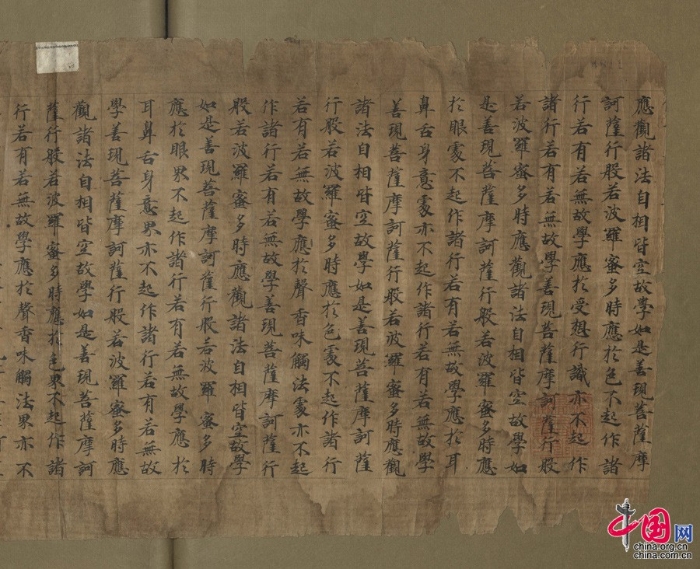 應觀諸法自相皆空故學如是善現菩薩摩
訶薩行般若波羅蜜多時應於色不起作諸
行若有若無故學應於受想行識亦不起作
諸行若有若無故學善現菩薩摩訶薩行般
若波羅蜜多時應觀諸法自相皆空故學如
是善現菩薩摩訶薩行般若波羅蜜多時應
於眼處不起作諸行若有若無故學應於耳
鼻舌身意處亦不起作諸行若有若無故學
善現菩薩摩訶薩行般若波羅蜜多時應觀
諸法自相皆空故學如是善現菩薩摩訶薩
行般若波羅蜜多時應於色處不起作諸行
若有若無故學應於聲香味觸法處亦不起
作諸行若有若無故學善現菩薩摩訶薩行
般若波羅蜜多時應觀諸法自相皆空故學
如是善現菩薩摩訶薩行般若波羅蜜多時
應於眼界不起作諸行若有若無故學應於
耳鼻舌身意界亦不起作諸行若有若無故
學善現菩薩摩訶薩行般若波羅蜜多時應
觀諸法自相皆空故學如是善現菩薩摩訶
薩行般若波羅蜜多時應於色界不起作諸
行若有若無故學應於聲香味觸法界亦不
中国网
china.org.cn
china.com.cn